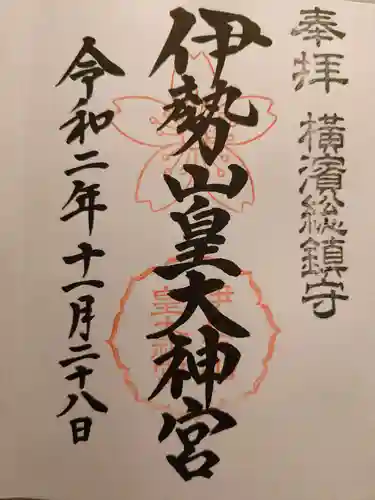 奉拝 横濱総鎮守
伊勢山皇大神宮
令和二年十一月二十八日